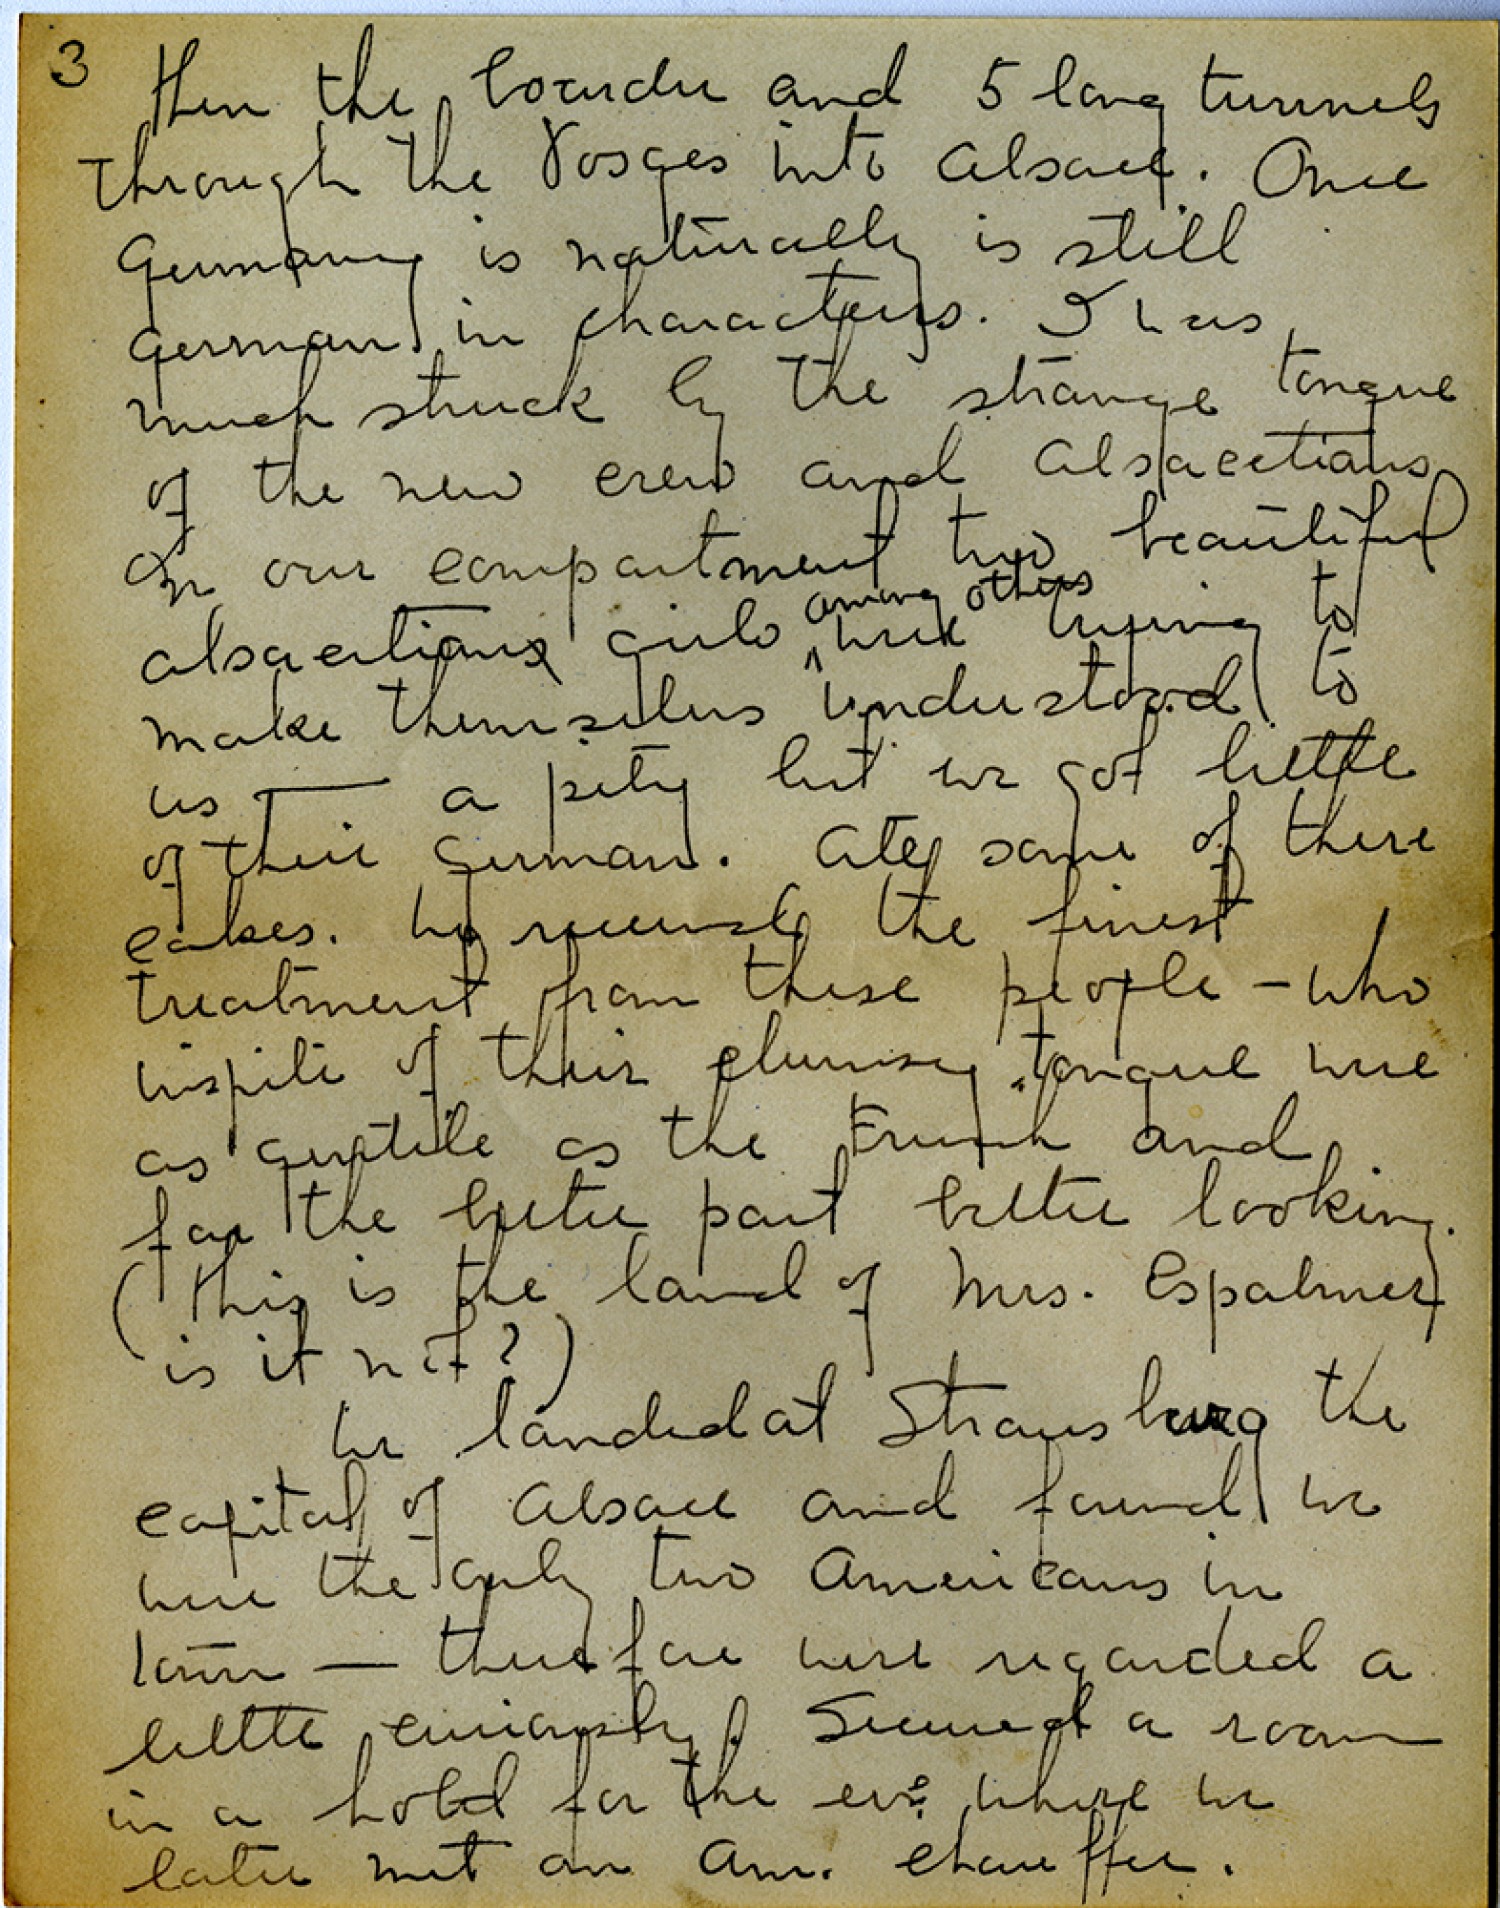 3
then the border and 5 long tunnels
through the Vosges into Alsace. Once
Germany is naturally is still
german in characters. I was
much struck by the strange tongue
of the new crew and Alsacetians
In our compartment two beautiful
among others
alsacetians girls ^ were trying to
make themselves understood to
us — a pity but we got little
of their German. Ate some of there
cakes. We received the finest
treatment from these people – who
inspite of their clumsey tongue were
as gentile as the French and
for the better part better looking.
(This is the land of Mrs. Espalmer
is it not?)
We landed at Strausburg the
capital of Alsace and found we
were the only two Americans in
town — therefore were regarded a
little curiously. Secured a room
in a hotel for the eve where we
later met an Am. chauffer.